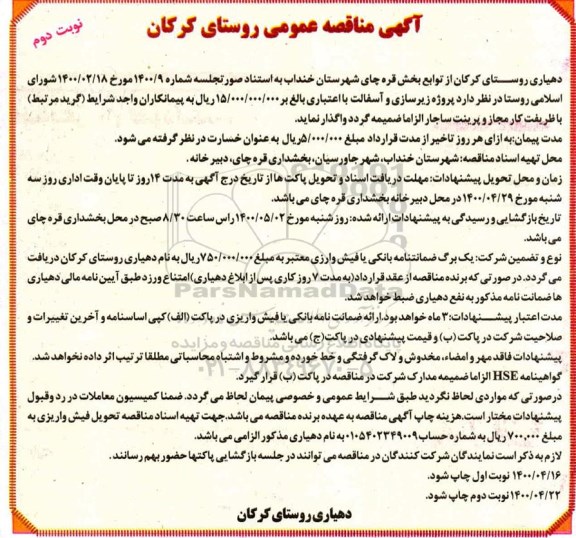 آگهی مناقصه عمومی روستای کرکان
نوبت دوم
دهیاری روستای کرکان از توابع بخش قره چای شهرستان خنداب به استناد صورتجلسه شماره ۱۴۰۰/۹ مورخ ۱۴۰۰/۰۲/۱۸ شورای
اسلامی روستا در نظر دارد پروژه زیرسازی و آسفالت با اعتباری بالغ بر ۱۵/۰۰۰/۰۰۰/۰۰۰ ریال به پیمانکاران واجد شرایط (گرید مرتبط)
با ظرفیت کار مجاز و پرینت ساجار الزاما ضمیمه گردد واگذار نماید.
مدت پیمان: به ازای هر روز تاخیر از مدت قرارداد مبلغ ۵/۰۰۰/۰۰۰ ریال به عنوان خسارت در نظر گرفته می شود.
محل تهیه اسناد مناقصه: شهرستان خنداب، شهر جاورسیان، بخشداری قره چای، دبیر خانه.
زمان و محل تحویل پیشنهادات: مهلت دریافت اسناد و تحویل پاکت ها از تاریخ درج آگهی به مدت ۱۴ روز تا پایان وقت اداری روز سه
شنبه مورخ ۱۴۰۰/۰۴/۲۹ در محل دبیرخانه بخشداری قره چای می باشد.
تاریخ بازگشایی و رسیدگی به پیشنهادات ارائه شده: روز شنبه مورخ ۱۴۰۰/۰۵/۰۲ راس ساعت ۸/۳۰ صبح در محل بخشداری قره چای
می باشد.
نوع و تضمین شرکت: یک برگ ضمانتنامه بانکی یا فیش واریزی معتبر به مبلغ ۷۵۰/۰۰۰/۰۰۰ ریال به نام دهیاری روستای کرکان دریافت
می گردد. در صورتی که برنده مناقصه از عقد قرارداد (به مدت ۷ روز کاری پس از ابلاغ دهیاری) امتناع ورزد طبق آیین نامه مالی دهیاری
ها ضمانت نامه مذکور به نفع دهیاری ضبط خواهد شد.
مدت اعتبار پیشنهادات: ۳ ماه خواهد بود. ارائه ضمانت نامه بانکی یا فیش واریزی در پاکت (الف) کپی اساسنامه و آخرین تغییرات و
صلاحیت شرکت در پاکت (ب) و قیمت پیشنهادی در پاکت (ج) می باشد.
پیشنهادات فاقد مهر و امضاء، مخدوش و لاک گرفتگی و خط خورده و مشروط و اشتباه محاسباتی مطلقا ترتیب اثر داده نخواهد شد.
گواهینامه HSE الزاما ضمیمه مدارک شرکت در مناقصه در پاکت (ب) قرار گیرد.
در صورتی که مواردی لحاظ نگردید طبق شرایط عمومی و خصوصی پیمان لحاظ می گردد. ضمنا کمیسیون معاملات در رد و قبول
پیشنهادات مختار است. هزینه چاپ آگهی مناقصه به عهده برنده مناقصه می باشد. جهت تهیه اسناد مناقصه تحویل فیش واریزی به
مبلغ ۷۰۰,۰۰۰ ریال به شماره حساب ۰۱۰۵۴۰۲۳۴۹۰۰۹ به نام دهیاری مذکور الزامی می باشد.
لازم به ذکر است نمایندگان شرکت کنندگان در مناقصه می توانند در جلسه بازگشایی پاکتها حضور بهم رسانند.
۱۴۰۰/۰۴/۱۶ نوبت اول چاپ شود.
۱۴۰۰/۰۴/۲۲ نوبت دوم چاپ شود.
دهیاری روستای کرکان
ParsNamadData
۰۲۱-۸۸۳۴۹۶۷۰-۵